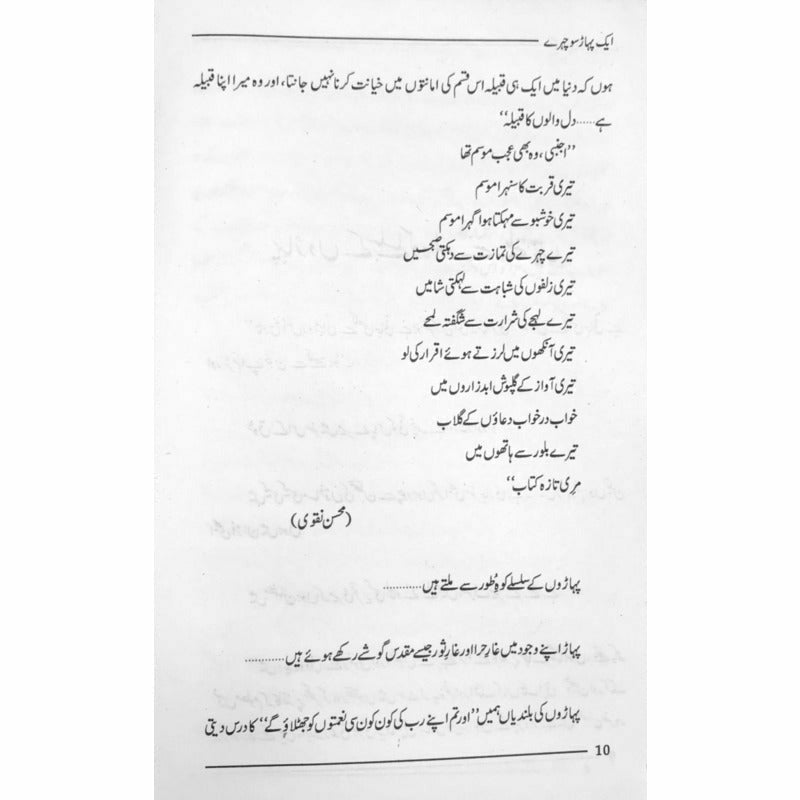 ایک پہاڑ سو چہرے
ہوں کہ دنیا میں ایک ہی قبیلہ اس قسم کی امانتوں میں خیانت کرنا نہیں جانتا، اور وہ میرا اپنا قبیلہ
ہے......دل والوں کا قبیلہ‘‘
’’اجنبی، وہ بھی عجب موسم تھا
تیری قربت کا سنہرا موسم
تیری خوشبو سے مہکتا ہوا گہرا موسم
تیرے چہرے کی تمازت سے دہکتی صبحیں
تیری زلفوں کی شباہت سے لہکتی شامیں
تیرے لہجے کی شرارت سے شگفتہ لمحے
تیری آنکھوں میں لرزتے ہوئے اقرار کی لو
تیری آواز کے گلپوش ابدزاروں میں
خواب در خواب دعاؤں کے گلاب
تیرے بلور سے ہاتھوں میں
مری تازہ کتاب‘‘
(محسن نقوی)
پہاڑوں کے سلسلے کوہِ طُور سے ملتے ہیں...........
پہاڑ اپنے وجود میں غارِ حرا اور غارِ ثور جیسے مقدس گوشے رکھے ہوئے ہیں...........
پہاڑوں کی بلندیاں ہمیں ’’اور تم اپنے رب کی کون کون سی نعمتوں کو جھٹلاؤ گے‘‘ کا درس دیتی
10